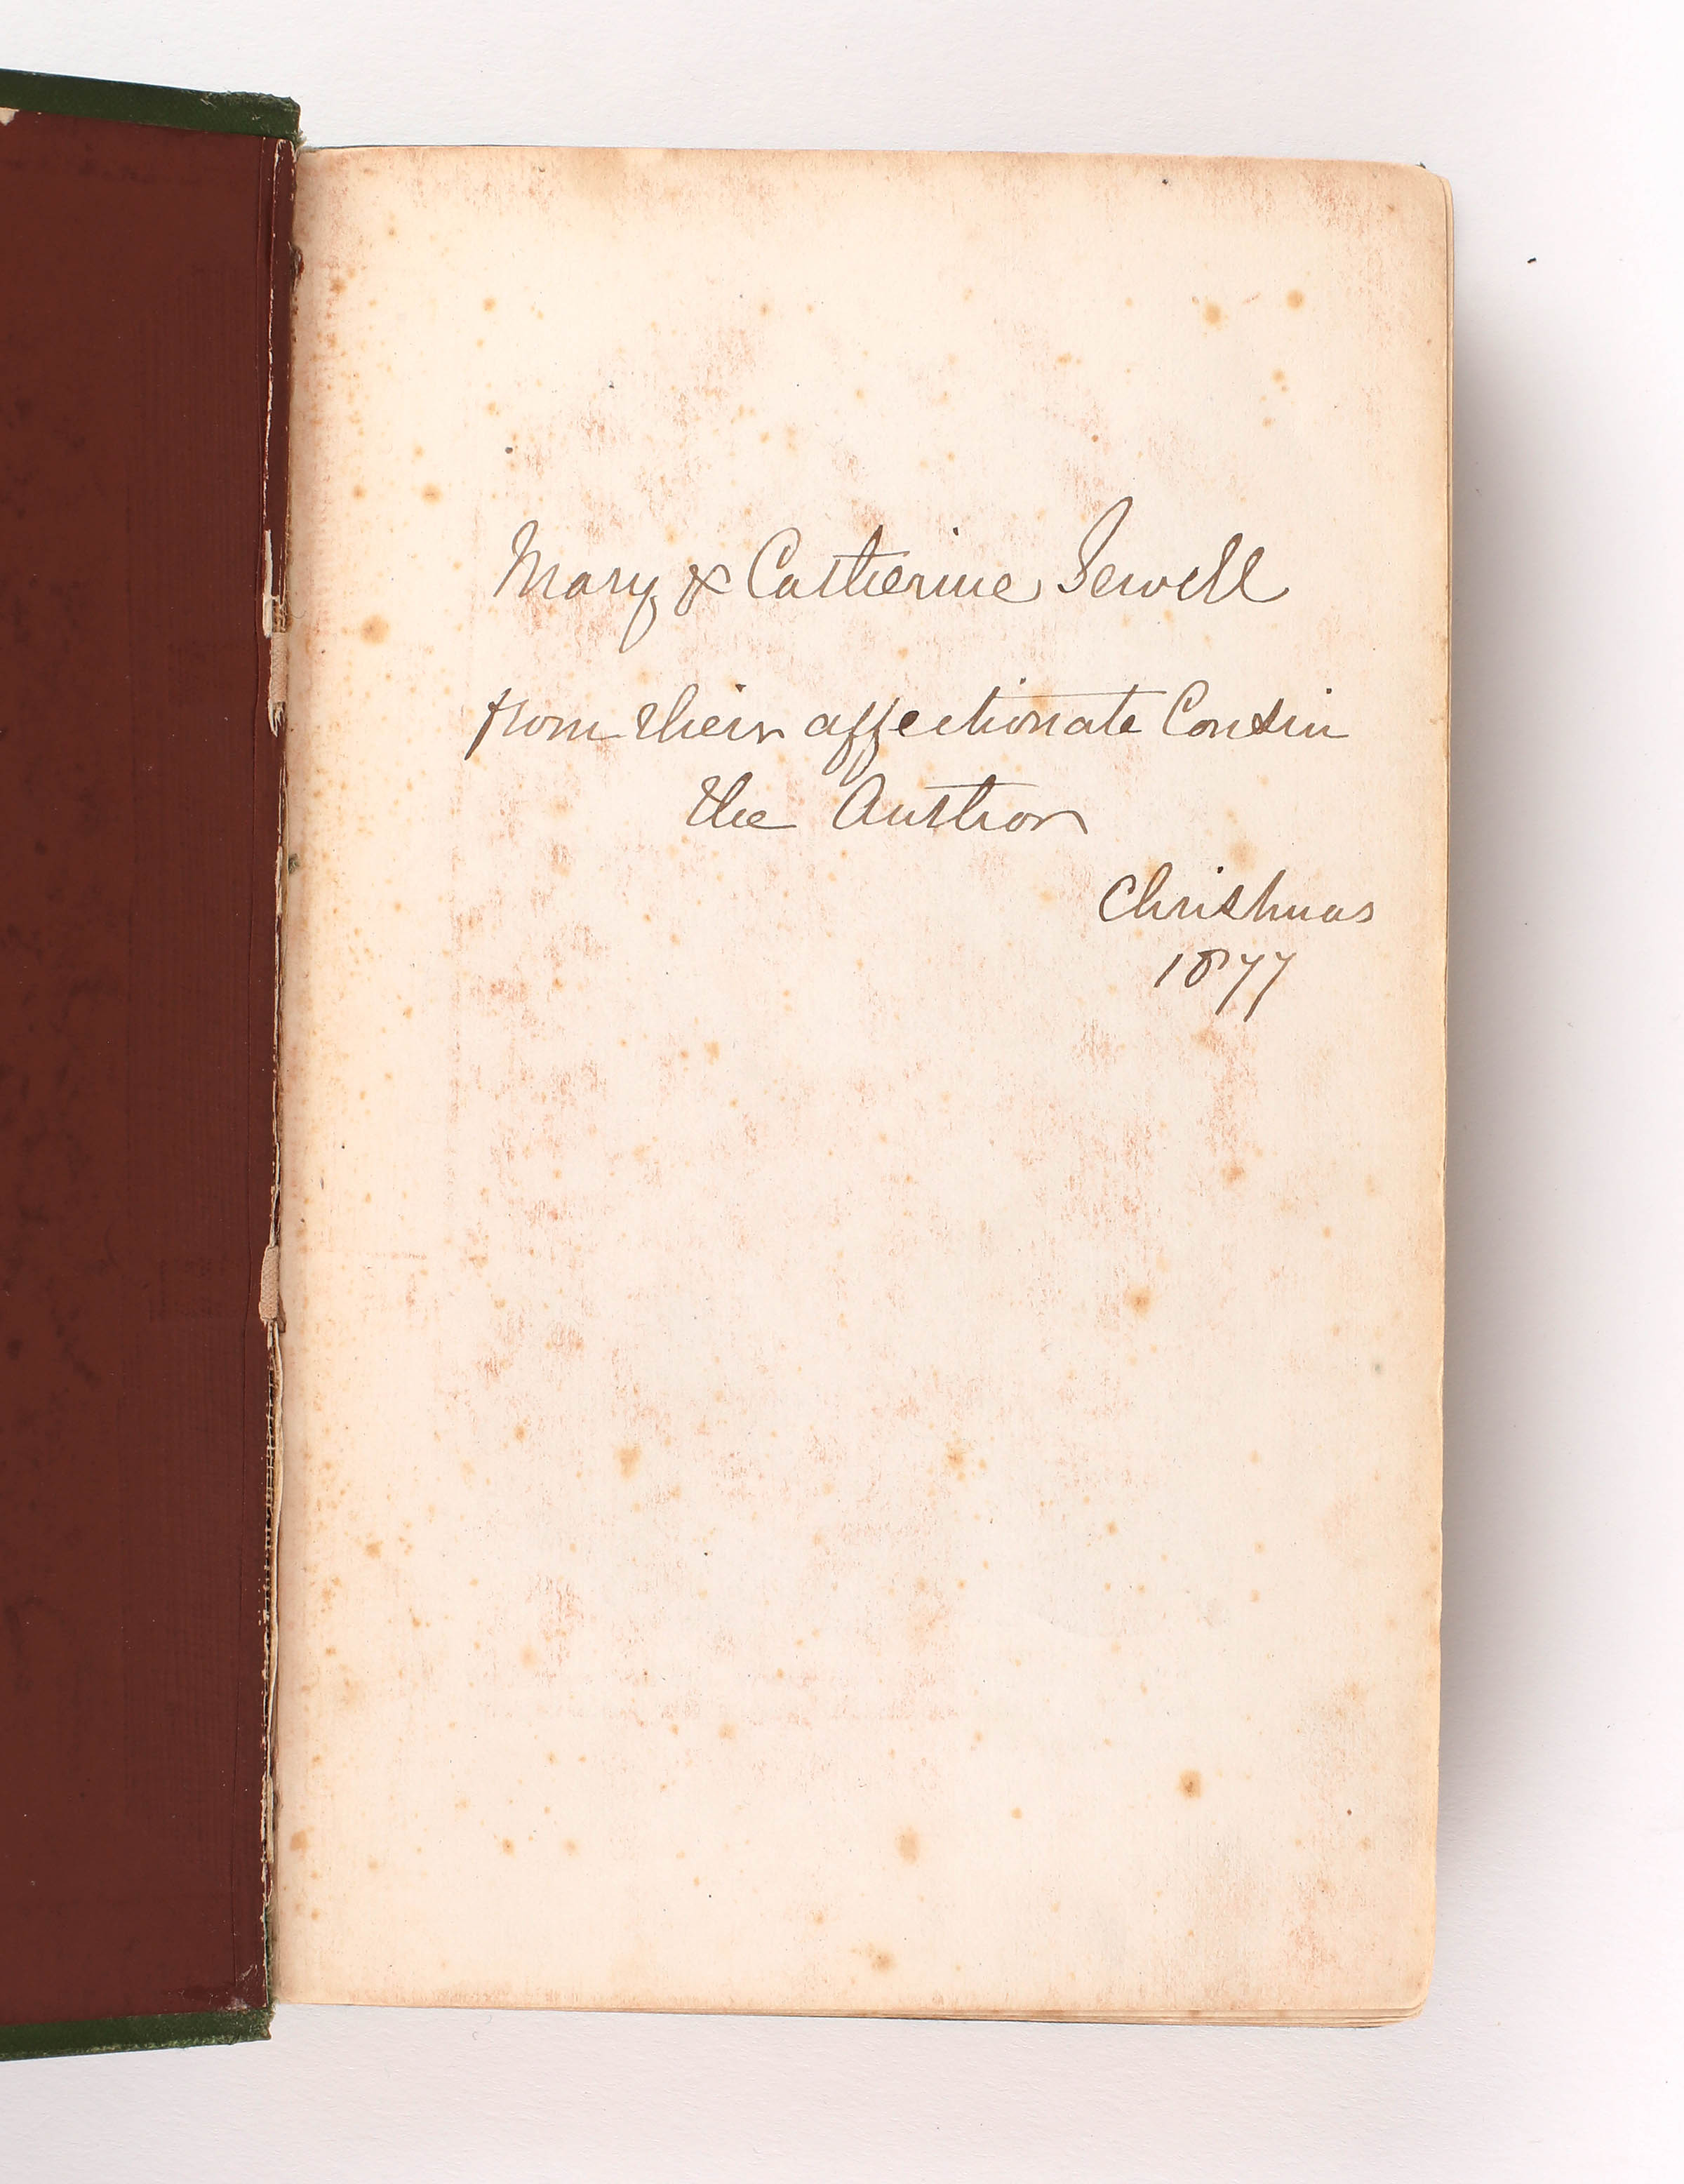 Mary & Catherine Sewell
from their affectionate Cousin
the Author
Christmas
1877